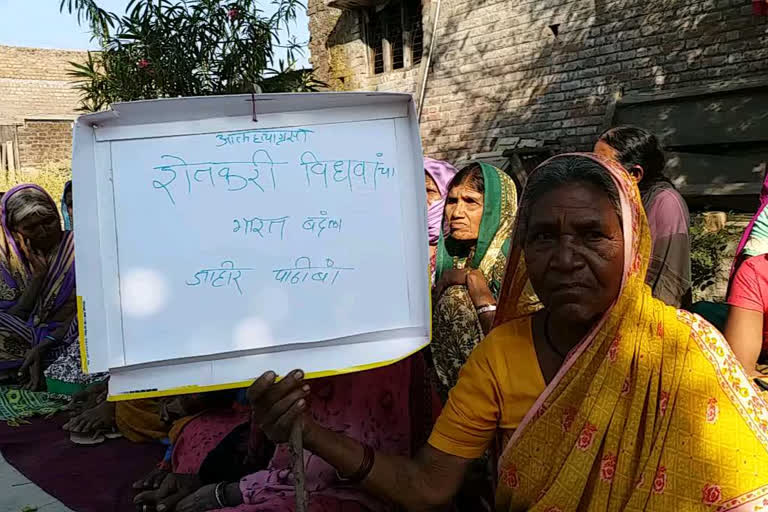 आत्महत्याग्रस्त
शेतकरी विधवांचा
भारत बंदला
जाहीर पाठींबा